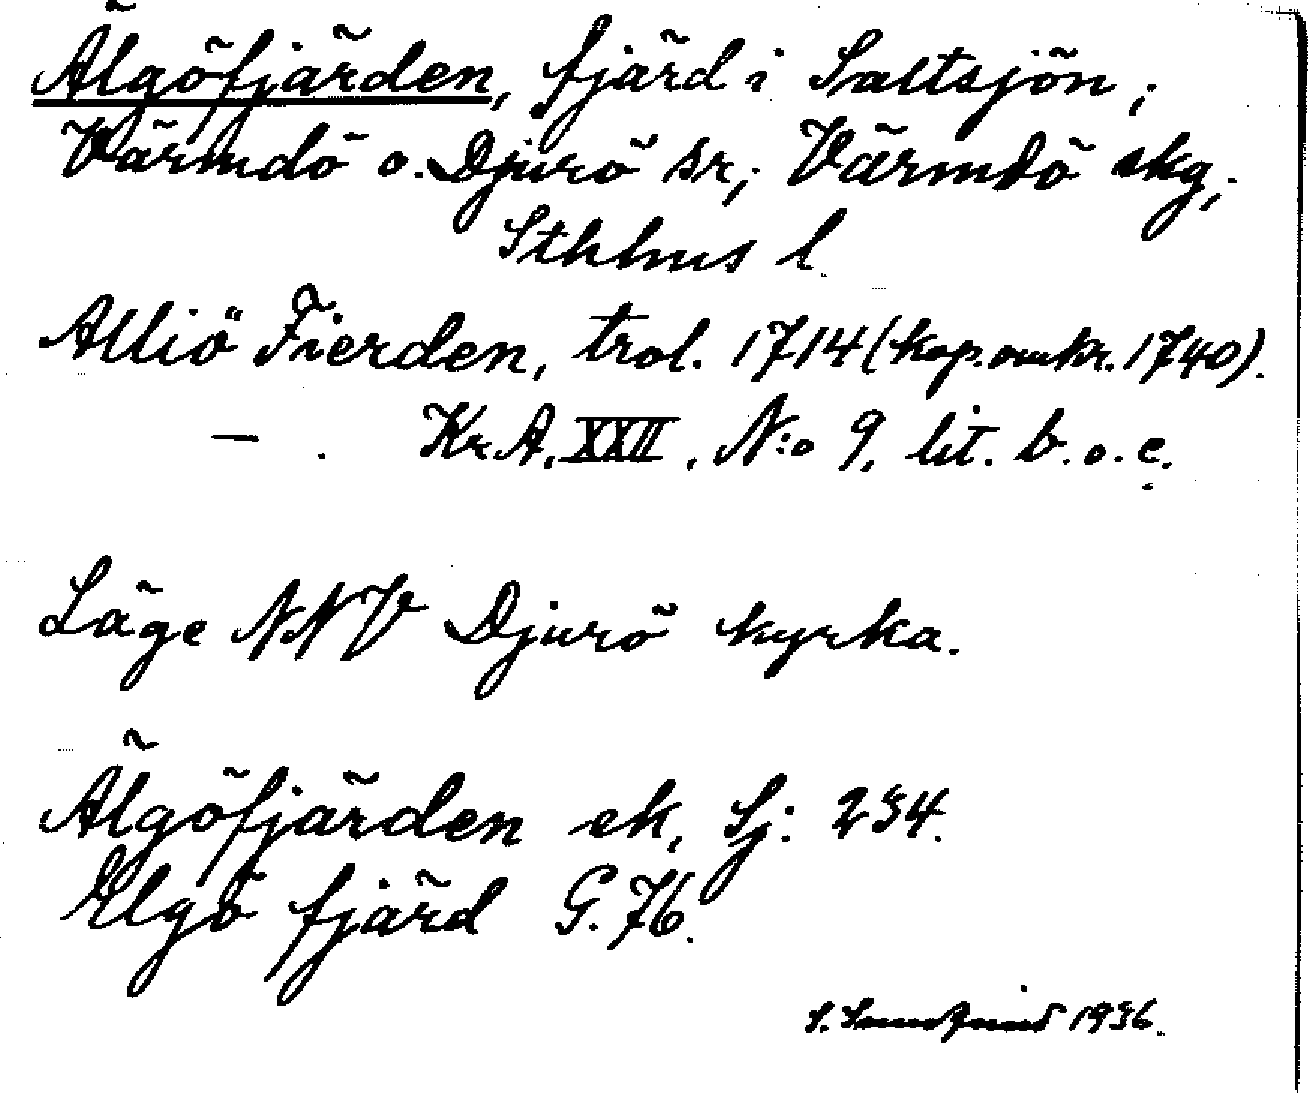 Älgöfjärden, fjärd i Saltsjön;
Värmdö o. Djurö sr; Värmdö skg;
Sthlms l.
Alliö Fierden, trol. 1714 (kop. omkr. 1740).
— . Kr.A. XXII. N:o 9. lit. b. o. e.
Läge NNV Djurö kyrka.
Älgöfjärden ek. Sj: 234.
Elgö fjärd G. 76.
S. 1936.